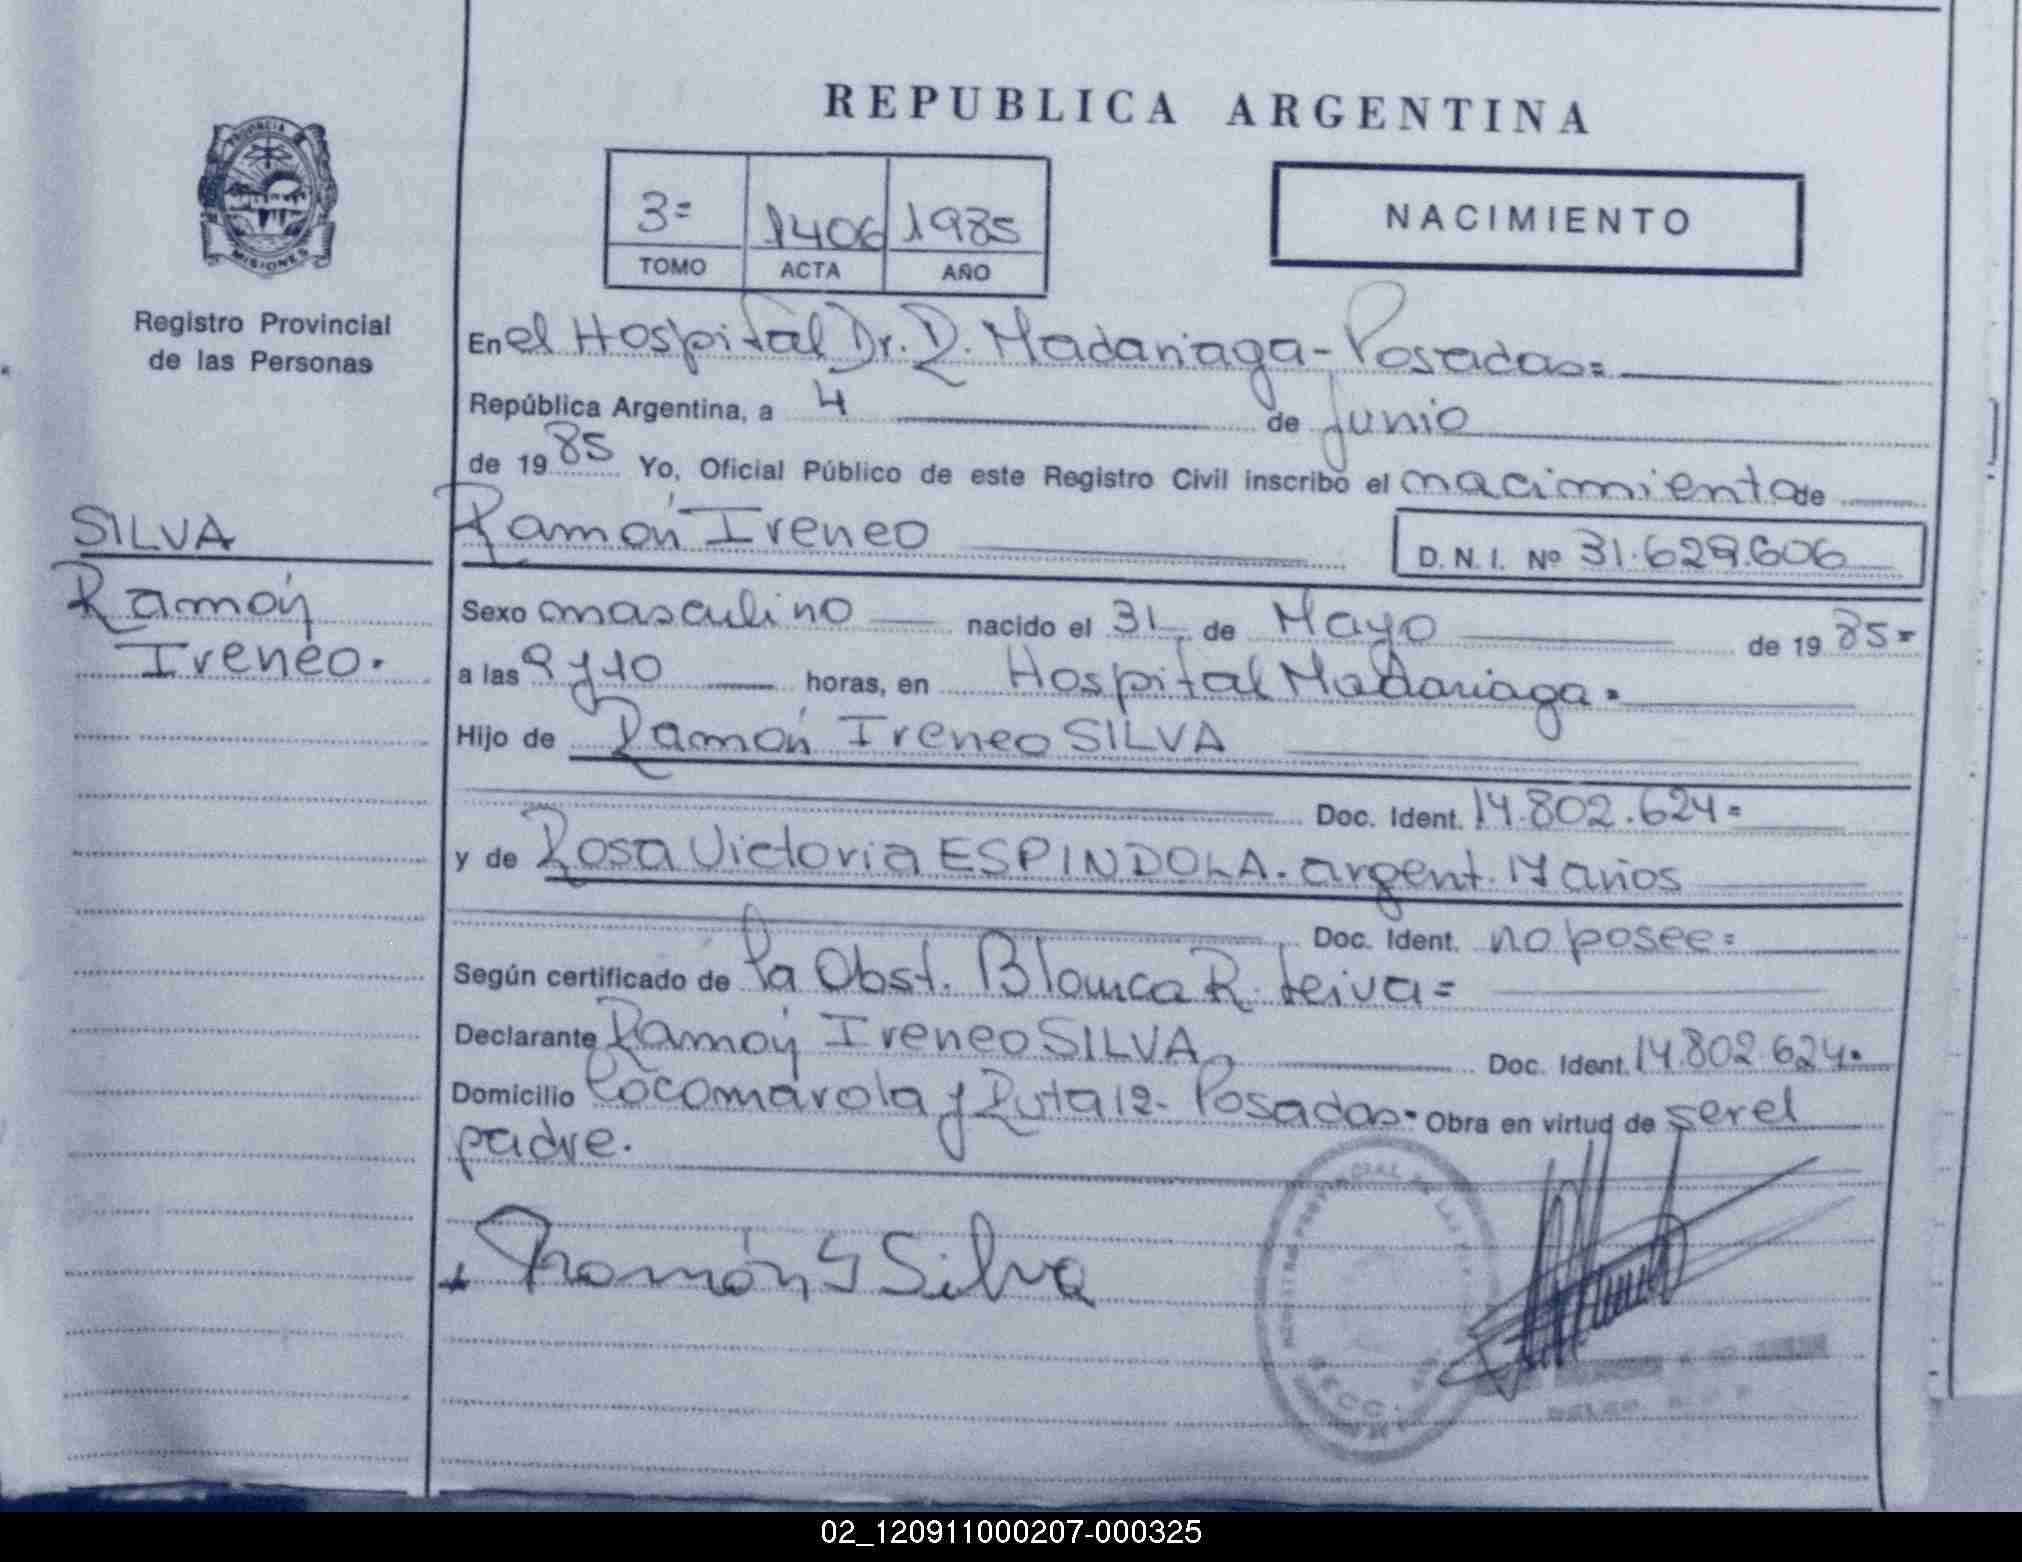 REPUBLICA ARGENTINA
PROVINCIA DE
MISIONES
Registro Provincial
de las Personas
3=
1406
1985
TOMO
ACTA
AÑO
NACIMIENTO
En el Hospital Dr. R. Madariaga - Posadas=
República Argentina, a 4 de junio
de 1985 Yo, Oficial Público de este Registro Civil inscribo el nacimiento de
SILVA
Ramón
Ireneo.
Ramón Ireneo
D. N. I. Nº 31.629.606
Sexo masculino nacido el 31 de Mayo de 1985=
a las 9 y 10 horas, en Hospital Madariaga=
Hijo de Ramón Ireneo SILVA
Doc. Ident. 14.802.624=
y de Rosa Victoria ESPINDOLA. argent. 17 años
Doc. Ident. no posee=
Según certificado de la Obst. Blanca R. Leiva=
Declarante Ramón Ireneo SILVA Doc. Ident. 14.802.624.
Domicilio Cocomarola y Ruta 12- Posadas. Obra en virtud de ser el
padre.
Ramón Y Silva
PROVINCIAL DE LAS
02_120911000207-000325